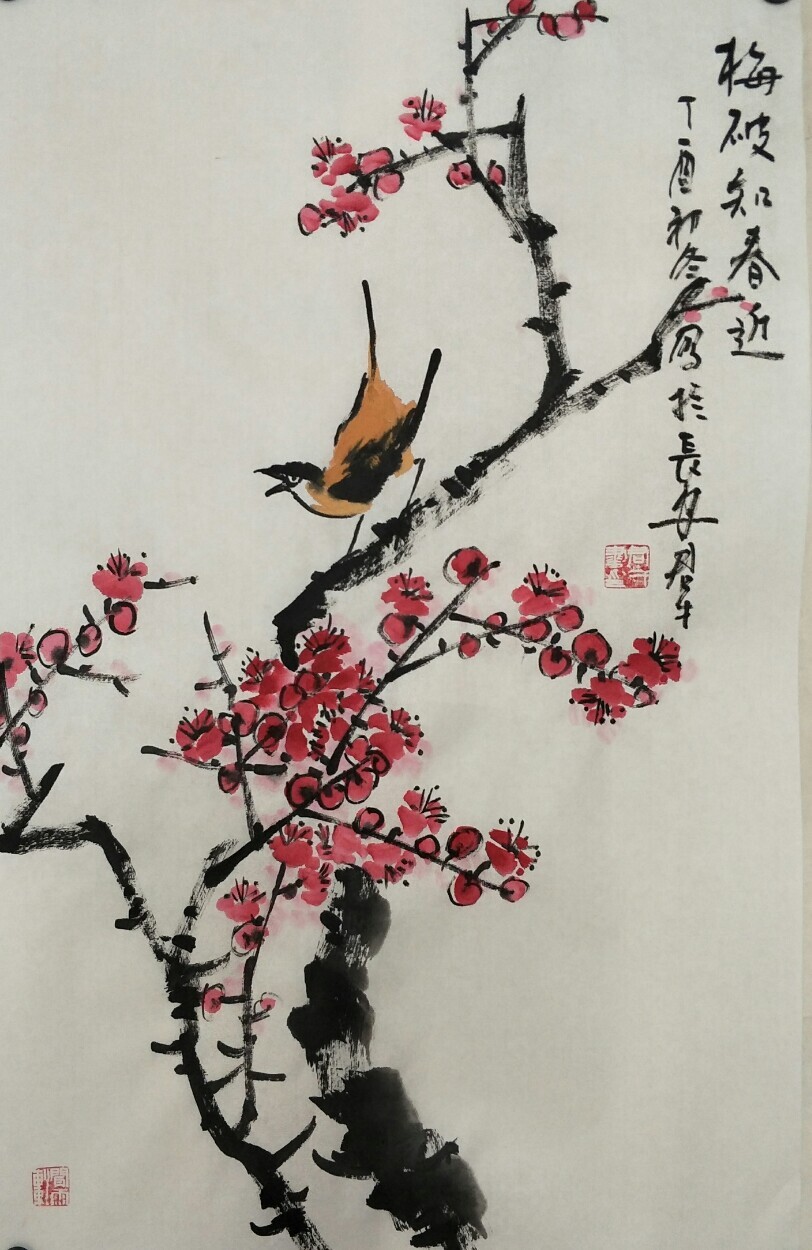 梅破知春近
丁酉初冬写於長安君牛